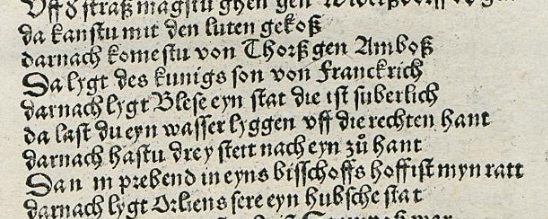 Vff d straß magstu ghen gen
da kanstu mit den luten gekoß
darnach komestu von Thorß gen Amboß
Da lygt des kunigs son von Franckrich
darnach lygt Blese eyn stat die ist suberlich
da last du eyn wasser lyggen vff die rechten hant
darnach hastu drey stett nach eyn zů hant
Dan in prebend in eyns bisschoffs hoff ist myn ratt
darnach lygt Orliens sere eyn hubsche stat